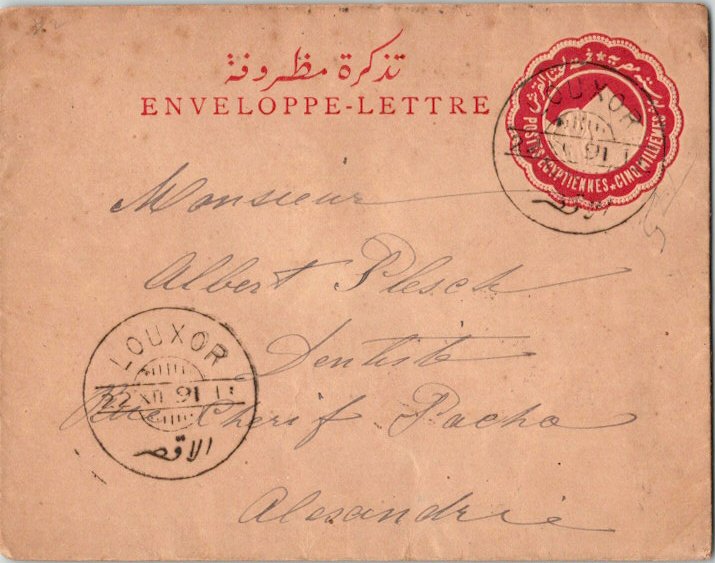 تذكرة مظروفة
ENVELOPPE-LETTRE
POSTES EGYPTIENNES ★ CINQ MILLIÈMES
LOUXOR
91
الاقصر
Monsieur
Albert Plesch
Dentiste
Rue Cherif Pacha
Alexandrie
LOUXOR
22 XII 91
الاقصر